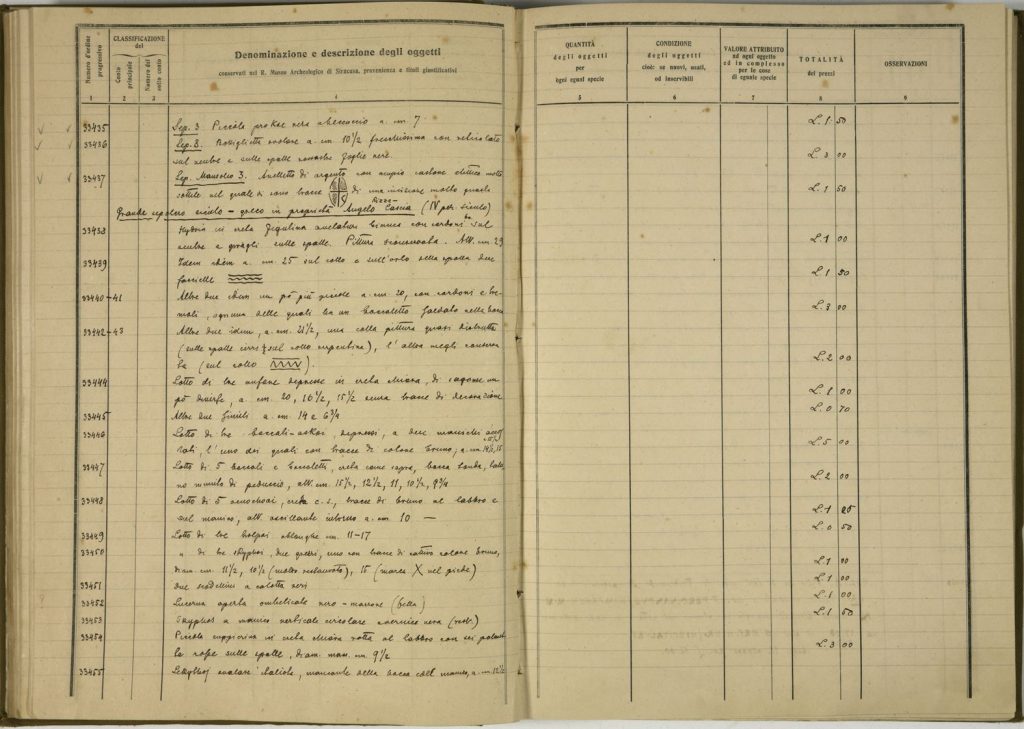 Numero d'ordine progressivo
CLASSIFICAZIONE del
Conto principale
Numero del sotto conto
Denominazione e descrizione degli oggetti
conservati nel R. Museo Archeologico di Siracusa, provenienza e titoli giustificativi
QUANTITÀ degli oggetti per ogni egual specie
CONDIZIONE degli oggetti cioè: se nuovi, usati, od inservibili
VALORE ATTRIBUITO ad ogni oggetto ed in complesso per le cose di eguale specie
TOTALITÀ dei prezzi
OSSERVAZIONI
1 2 3 4 5 6 7 8 9
33435 Sep. 3 Piccola prokoe nera a cm. 7 L. 1 50
33436 Sep. 2. Bottiglietta ovolare a. cm. 10 1/2 freschissima con reticolato
sul ventre e sulle spalle foglie nere. L. 3 00
33437 Sep. Mausoleo 3. Anelletto di argento con ampio castone ellittico molto
sottile nel quale si sono tracce di una incisione molto guasta L. 1 50
Grande sepolcro siculo-greco in proprietà Angelo Cascia (IV per. siculo)
33438 Hydria in creta figulina bianca con cordoni sul
ventre e sulle spalle. Pittura Alt. cm. 29 L. 1 00
33439 Idem idem a. cm. 25 sul collo e sull'orlo della spalla due
fascielle L. 1 50
33440-41 Altre due idem un pò più piccole a. cm. 20, con cordoni
ognuna delle quali ha un boccaletto saldato nella bocca L. 3 00
33442-43 Altre due idem, a. cm. 21 1/2, una colla pittura quasi distrutta
(sulle spalle cirri e sul collo serpentina), l'altra meglio conserva
ta (sul collo ). L. 2 00
33444 Lotto di tre anfore depresse in creta chiara, di sagome un
pò diverse, a cm. 20, 16 1/2, 15 1/2 senza tracce di decorazione L. 1 00
33445 Altre due simili a. cm. 14 e 6 3/4 L. 0 70
33446 Lotto di tre boccali-askoi, depressi, a due manichi
l'uno dei quali con tracce di colore bruno; a. cm. 14 1/2, 15 L. 5 00
33447 Lotto di 5 boccali e boccaletti, creta come sopra, bocca tonda,
no muniti di peduccio, alt. cm. 15 1/2, 12 1/2, 11, 10 1/2, 9 3/4 L. 2 00
33448 Lotto di 5 oenochoai, creta c. s., tracce di bruno al labbro e
sul manico, alt. oscillante intorno a. cm. 10 — L. 1 25
33449 Lotto di tre holpai oblunghe cm. 11-17 L. 0 50
33450 " di tre skyphoi, due grezzi, uno con tracce di cattivo colore bruno,
diam. cm. 11 1/2, 10 1/2 (molto restaurato), 15 (marca X nel piede)
33451 due scodellini a calotta neri L. 1 00
33452 Lucerna aperta ombelicale nero-marrone (bella) L. 1 00
33453 Skyphos a manico verticale circolare a vernice nera (restr.) L. 1 50
33454 Piccola in creta chiara rotta al labbro con sei
sulle spalle, diam. mass. cm. 9 1/2 L. 3 00
33455 Lekythos ovolare italiota, mancante della bocca e del manico, a. cm. 12 1/2